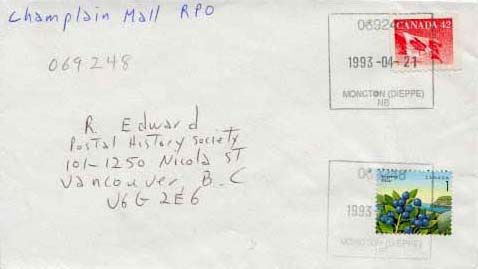 Champlain Mall RPO
069248
R. Edward
Postal History Society
101-1250 Nicola ST
Vancouver, B.C
V6G 2E6
CANADA 42
1993-04-21
MONCTON (DIEPPE)
NB
CANADA 1
1993
MONCTON (DIEPPE)
NB